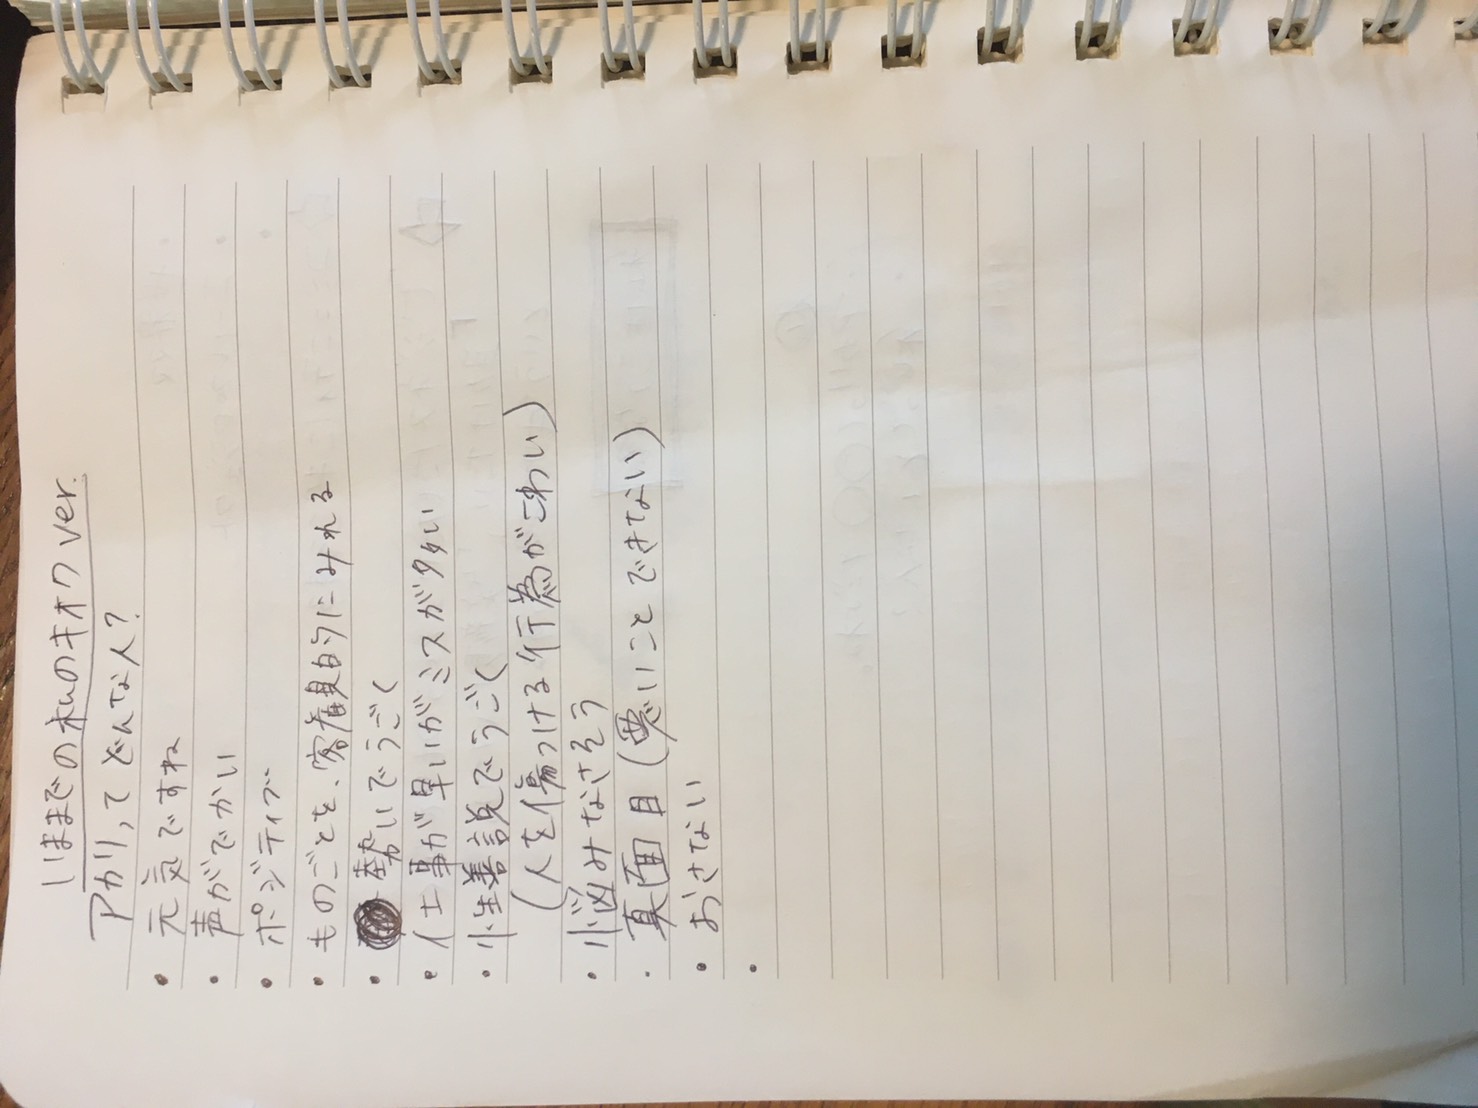 いままでの私のキオクver.
アカリってどんな人?
・元気ですね
・声がでかい
・ポジティブ
・ものごとを、客観的にみれる
・勢いでうごく
・仕事が早いがミスが多い
・性善説でうごく
(人を傷つける行為がこわい)
・悩みなさそう
・真面目(悪いことできない)
・おさない
・